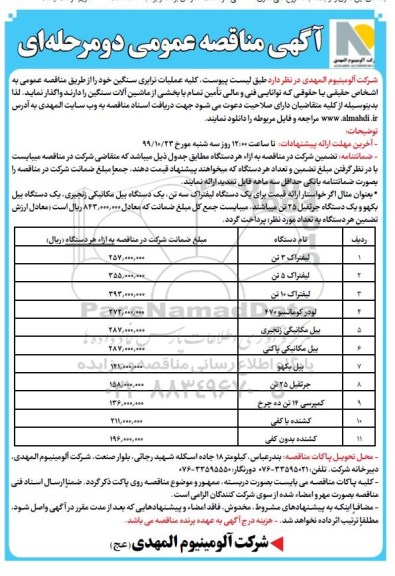 آگهی مناقصه عمومی دو مرحله‌ای
شرکت آلومینیوم المهدی
شرکت آلومینیوم المهدی در نظر دارد طبق لیست پیوست، کلیه عملیات ترابری سنگین خود را از طریق مناقصه عمومی به
اشخاص حقیقی یا حقوقی که توانایی فنی و مالی تأمین تمام یا بخشی از ماشین آلات سنگین را دارند واگذار نماید. لذا
بدینوسیله از کلیه متقاضیان دارای صلاحیت دعوت می شود جهت دریافت اسناد مناقصه به وب سایت المهدی به آدرس
www.almahdi.ir مراجعه و فایل مربوطه را دانلود نمایند.
توضیحات:
- آخرین مهلت ارائه پیشنهادات: تا ساعت ۱۲:۰۰ روز سه شنبه مورخ ۹۹/۱۰/۲۳
- ضمانتنامه: تضمین شرکت در مناقصه به ازاء هر دستگاه مطابق جدول ذیل میباشد که متقاضی شرکت در مناقصه میبایست
با در نظر گرفتن مبلغ تضمین و تعداد هر دستگاه که میخواهند پیشنهاد قیمت دهند، جمعاً مبلغ ضمانت شرکت در مناقصه را
بصورت ضمانتنامه بانکی حداقل سه ماهه قابل تمدید ارائه نمایند.
* بعنوان مثال اگر خواستار ارائه قیمت برای یک دستگاه لیفتراک سه تن، یک دستگاه بیل مکانیکی زنجیری، یک دستگاه بیل
بکهو و یک دستگاه جرثقیل ۲۵ تن میباشند، میبایست جمع کل مبلغ ضمانت که معادل ۸۴۳,۰۰۰,۰۰۰ ریال است (معادل ارزش
تضمین هر دستگاه به تعداد مورد نظر) پرداخت گردد.
ردیف نام دستگاه مبلغ ضمانت شرکت در مناقصه به ازاء هر دستگاه (ریال)
۱ لیفتراک ۳ تن ۲۵۷,۰۰۰,۰۰۰
۲ لیفتراک ۵ تن ۳۵۵,۰۰۰,۰۰۰
۳ لیفتراک ۱۰ تن ۳۹۳,۰۰۰,۰۰۰
۴ لودر کوماتسو ۴۷۰ ۲۷۲,۰۰۰,۰۰۰
۵ بیل مکانیکی زنجیری ۲۸۷,۰۰۰,۰۰۰
۶ بیل مکانیکی پاکتی ۲۸۷,۰۰۰,۰۰۰
۷ بیل بکهو ۱۴۱,۰۰۰,۰۰۰
۸ جرثقیل ۲۵ تن ۱۵۸,۰۰۰,۰۰۰
۹ کمپرسی ۱۴ تن ده چرخ ۱۳۶,۰۰۰,۰۰۰
۱۰ کشنده با کفی ۲۱۱,۰۰۰,۰۰۰
۱۱ کشنده بدون کفی ۱۹۶,۰۰۰,۰۰۰
- محل تحویل پاکات مناقصه: بندرعباس، کیلومتر ۱۸ جاده اسکله شهید رجائی، بلوار صنعت، شرکت آلومینیوم المهدی،
دبیرخانه شرکت. تلفن: ۳۳۵۹۵۰۲۱-۰۷۶ دورنگار: ۳۳۵۹۵۵۵۰-۰۷۶
- کلیه پاکات مناقصه می بایست بصورت دربسته، ممهور و موضوع مناقصه روی پاکت ذکر گردد. ضمناً ارسال اسناد فنی
مناقصه بصورت مهر و امضاء شده از سوی شرکت کنندگان الزامی است.
- مضافاً اینکه به پیشنهادهای مشروط، مخدوش، فاقد امضاء و پیشنهادهایی که بعد از مدت مقرر در آگهی واصل شود،
مطلقاً ترتیب اثر داده نخواهد شد. - هزینه درج آگهی به عهده برنده مناقصه می باشد.
شرکت آلومینیوم المهدی (عج)